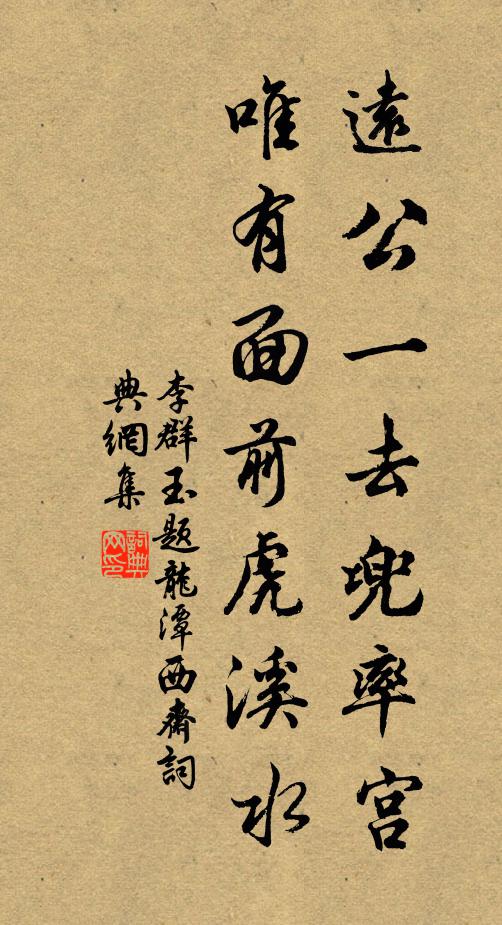 遠公一去兜率宮
唯有面前虎溪水
李群玉題龍潭西齋詞
典網集
詞典
网印